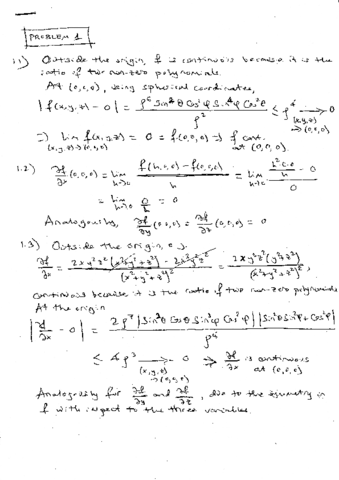 PROBLEM 1
1.1) Outside the origin, f is continuous because it is the
ratio of two non-zero polynomials.
At (0,0,0), using spherical coordinates,
|f(x,y,z) - 0| = ρ⁶ sin⁴θ cos²φ sin²φ cos²θ / ρ² ≤ ρ⁴ → 0
(x,y,z) → (0,0,0)
⇒ lim f(x,y,z) = 0 = f(0,0,0) ⇒ f cont.
(x,y,z)→(0,0,0) at (0,0,0).
1.2) ∂f/∂x (0,0,0) = lim h→0 (f(h,0,0) - f(0,0,0))/h = lim h→0
= lim h→0 0/h = 0
Analogously, ∂f/∂y (0,0,0) = ∂f/∂z (0,0,0) = 0
1.3) Outside the origin,
∂f/∂x = (2xy²z²(x²+y²+z²) - 2x³y²z²)/(x²+y²+z²)² = 2xy²z²(y²+z²)/(x²+y²+z²)²,
continuous because it is the ratio of two non-zero polynomials
At the origin
|∂f/∂x - 0| = 2ρ⁷
≤ 4ρ³ → 0 ⇒ ∂f/∂x is continuous
(x,y,z) → (0,0,0) at (0,0,0)
Analogously for ∂f/∂y and ∂f/∂z, due to the symmetry in
f with respect to the three variables.